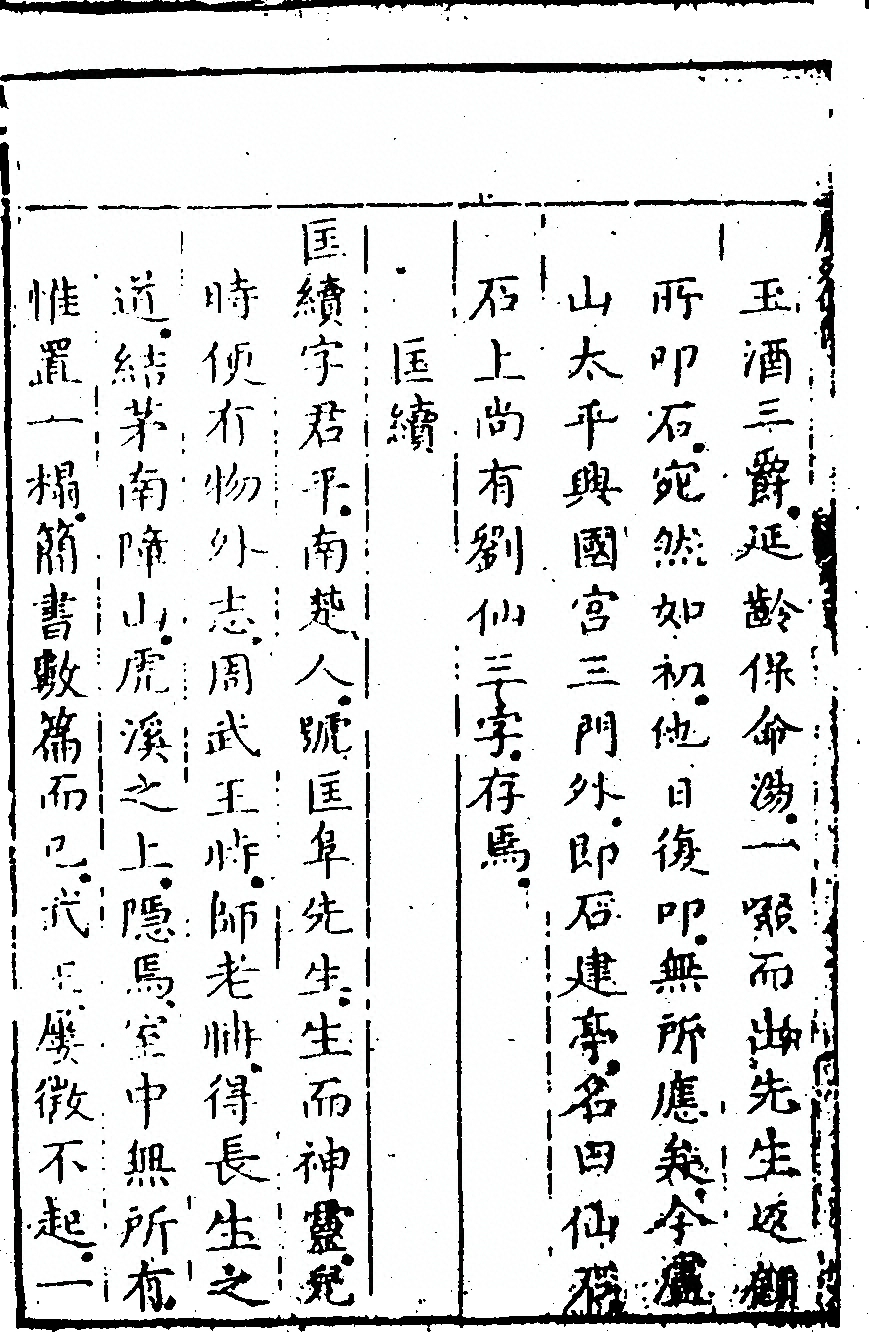 玉酒三爵延齡保命湯一啜而出先生返顧
所叩石宛然如初他日復叩無所應矣今廬
山太平興國宮三門外即石建亭名曰仙石
石上尚有劉仙三字存焉
匡續
匡續字君平南楚人號匡阜先生生而神靈兒
時便有物外志周武王時師老聃得長生之
道結茅南障山虎溪之上隱焉室中無所有
惟置一榻簡書數篇而已武王屢徵不起一